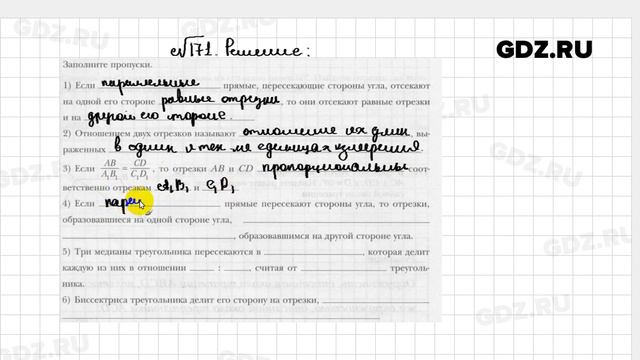 №171. Решение:
GDZ.RU
Заполните пропуски.
1) Если параллельные прямые, пересекающие стороны угла, отсекают
на одной его стороне равные отрезки, то они отсекают равные отрезки
и на другой его стороне.
2) Отношением двух отрезков называют отношение их длин, вы-
раженных в одних и тех же единицах измерения.
3) Если AB/A₁B₁ = CD/C₁D₁, то отрезки AB и CD пропорциональны соот-
ветственно отрезкам A₁B₁ и C₁D₁
4) Если пар прямые пересекают стороны угла, то отрезки,
образовавшиеся на одной стороне угла,
, образовавшимся на другой стороне угла.
5) Три медианы треугольника пересекаются в , которая делит
каждую из них в отношении : , считая от треуголь-
ника.
6) Биссектриса треугольника делит его сторону на отрезки,